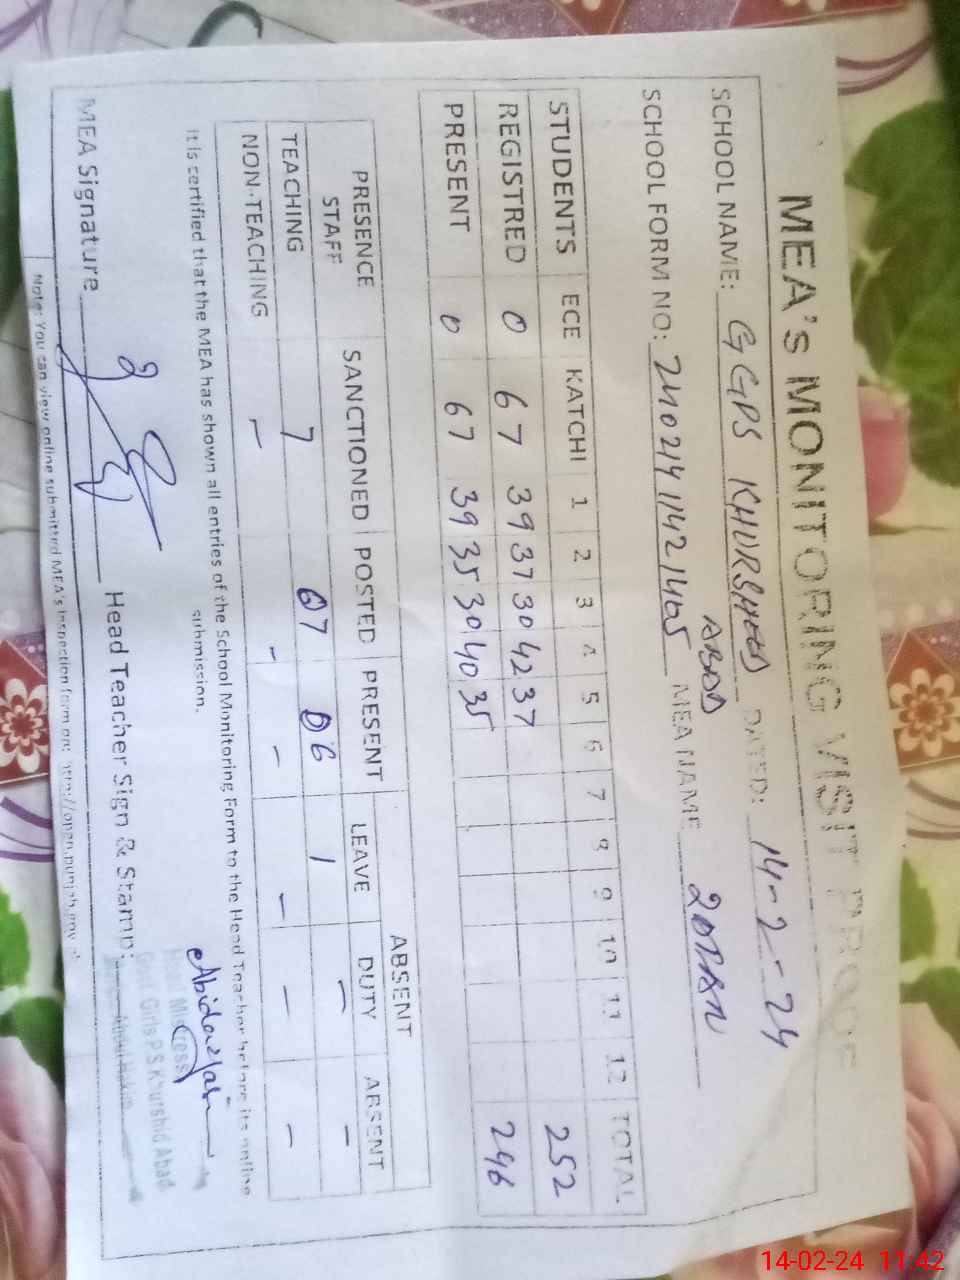 MEA's MONITORING VISIT PROOF
SCHOOL NAME: GGPS KHURSHEED ABAD DATED: 14-2-24
SCHOOL FORM NO: MEA NAME
STUDENTS ECE KATCHI 1 2 3 4 5 6 7 8 9 10 11 12 TOTAL
REGISTRED 0 67 39 37 30 42 37 252
PRESENT 0 67 39 35 30 40 35 246
PRESENCE STAFF SANCTIONED POSTED PRESENT ABSENT
LEAVE DUTY ABSENT
TEACHING 7 07 06 1 - -
NON-TEACHING - - - - - -
It is certified that the MEA has shown all entries of the School Monitoring Form to the Head Teacher before its online
submission.
MEA Signature Head Teacher Sign & Stamp:
Head Mistress
Govt. Girls P.S Khurshid Abad
Abdul Hakim
Note: You can view online submitted MEA's Inspection form on: http://open.punjab.gov.pk
14-02-24 11:42